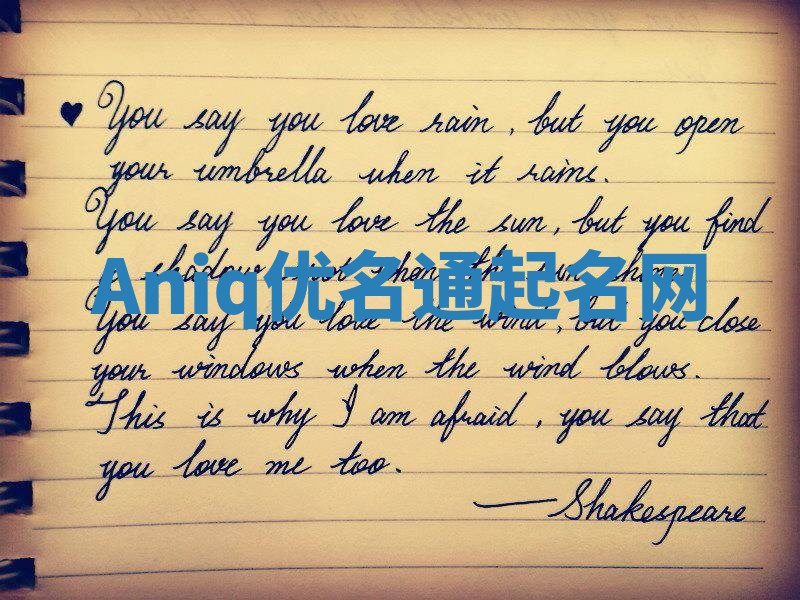 ♥ You say you love rain, but you open
your umbrella when it rains.
You say you love the sun, but you find
a shadow spot when the sun shines.
Aniq优名通起名网
You say you love the wind, but you close
your windows when the wind blows.
This is why I am afraid, you say that
you love me too.
—Shakespeare